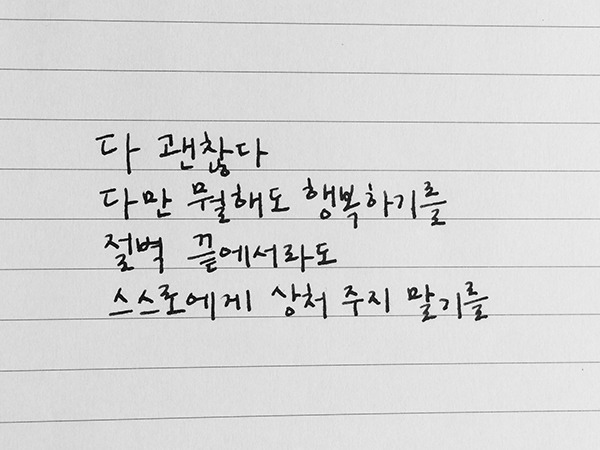 다 괜찮다
다만 뭘해도 행복하기를
절벽 끝에서라도
스스로에게 상처 주지 말기를